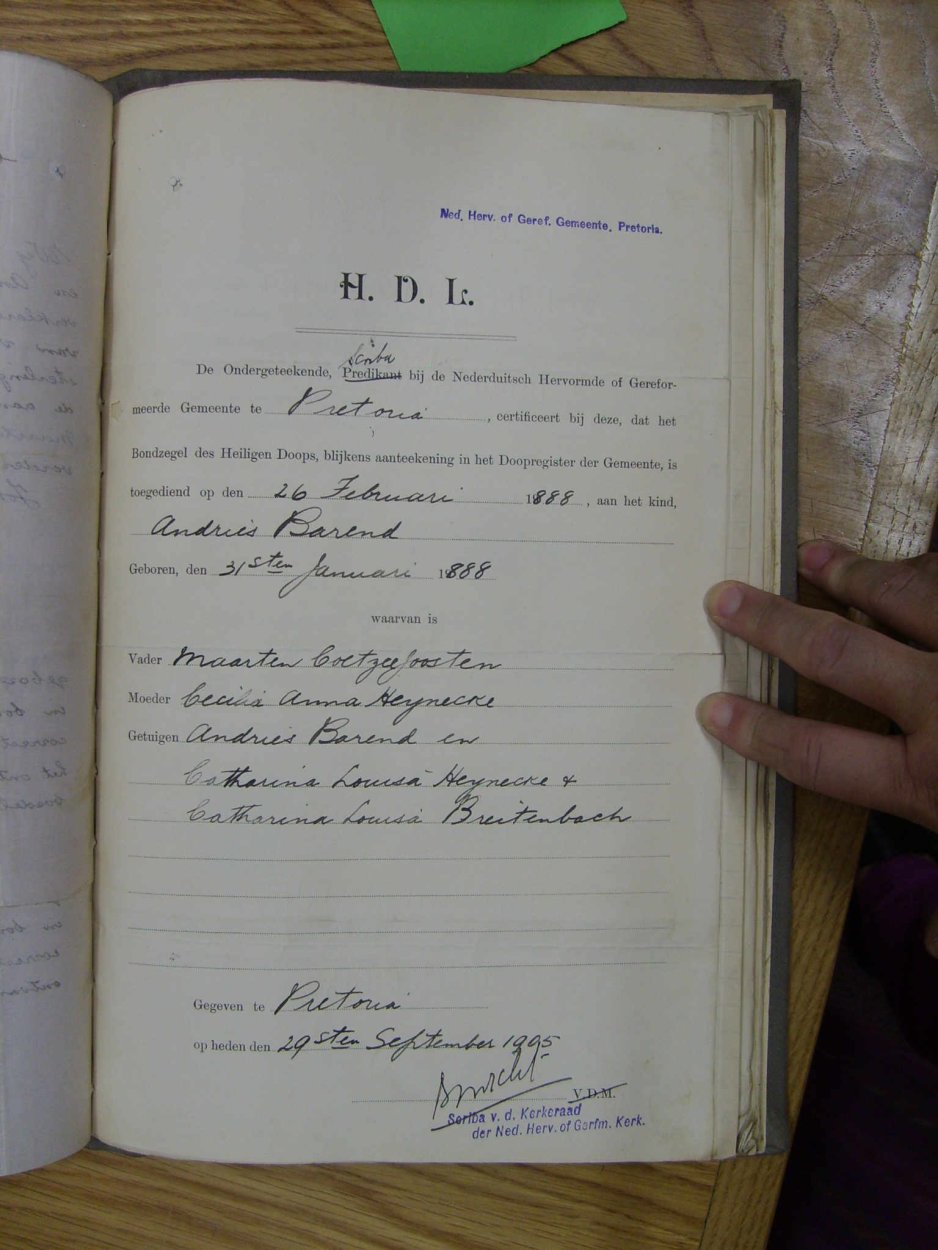 Ned. Herv. of Geref. Gemeente, Pretoria.
H. D. L.
Scriba
De Ondergeteekende, Predikant bij de Nederduitsch Hervormde of Gerefor-
meerde Gemeente te Pretoria, certificeert bij deze, dat het
Bondzegel des Heiligen Doops, blijkens aanteekening in het Doopregister der Gemeente, is
toegediend op den 26 Februari 1888, aan het kind,
Andries Barend
Geboren, den 31sten Januari 1888
waarvan is
Vader Maarten Coetzee Joosten
Moeder Cecilia Anna Heynecke
Getuigen Andries Barend en
Catharina Louisa Heynecke &
Catharina Louisa Breitenbach
Gegeven te Pretoria
op heden den 29sten September 1905
V.D.M.
Scriba v. d. Kerkeraad
der Ned. Herv. of Gerfm. Kerk.